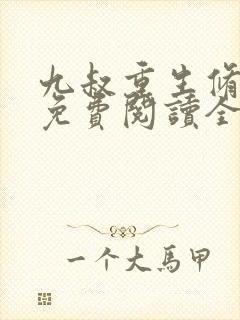 九叔重生脩
免費閱讀全
一个大馬甲